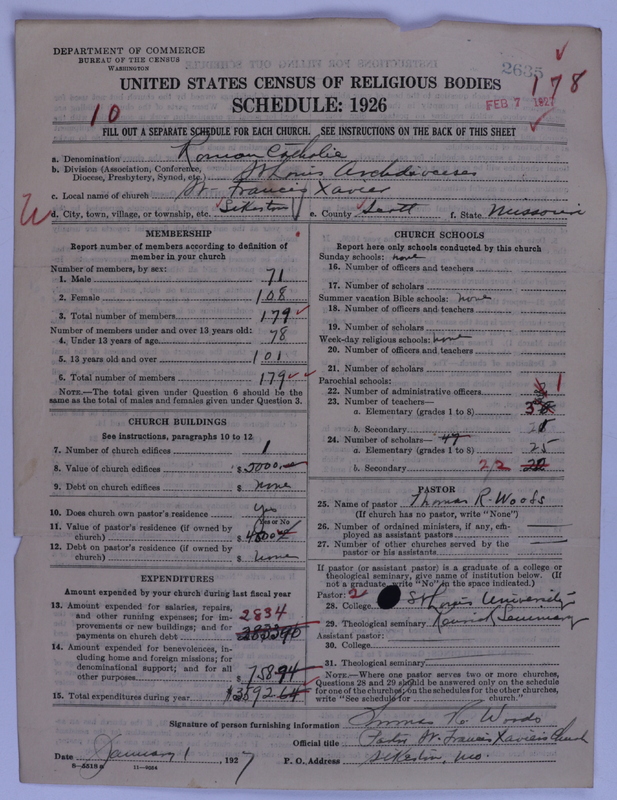 DEPARTMENT OF COMMERCE
BUREAU OF THE CENSUS
WASHINGTON
2635
178
UNITED STATES CENSUS OF RELIGIOUS BODIES
SCHEDULE: 1926
FEB 7 1927
10
FILL OUT A SEPARATE SCHEDULE FOR EACH CHURCH. SEE INSTRUCTIONS ON THE BACK OF THIS SHEET
a. Denomination Roman Catholic
b. Division (Association, Conference, Diocese, Presbytery, Synod, etc.) St Louis Archdiocese
c. Local name of church St. Francis Xavier
d. City, town, village, or township, etc. Sikeston e. County Scott f. State Missouri
MEMBERSHIP
Report number of members according to definition of member in your church
Number of members, by sex:
1. Male 71
2. Female 108
3. Total number of members 179
Number of members under and over 13 years old:
4. Under 13 years of age 78
5. 13 years old and over 101
6. Total number of members 179
NOTE.—The total given under Question 6 should be the same as the total of males and females given under Question 3.
CHURCH BUILDINGS
See instructions, paragraphs 10 to 12
7. Number of church edifices 1
8. Value of church edifices $5000.00
9. Debt on church edifices $ none
10. Does church own pastor's residence Yes
Yes or No
11. Value of pastor's residence (if owned by church) $
12. Debt on pastor's residence (if owned by church) $ None
EXPENDITURES
Amount expended by your church during last fiscal year
13. Amount expended for salaries, repairs, and other running expenses; for improvements or new buildings; and for payments on church debt 2834
14. Amount expended for benevolences, including home and foreign missions; for denominational support; and for all other purposes $ 758.94
15. Total expenditures during year $3592.64
CHURCH SCHOOLS
Report here only schools conducted by this church
Sunday schools: none
16. Number of officers and teachers
17. Number of scholars
Summer vacation Bible schools: none
18. Number of officers and teachers
19. Number of scholars
Week-day religious schools: none
20. Number of officers and teachers
21. Number of scholars
Parochial schools:
22. Number of administrative officers 1
23. Number of teachers—
a. Elementary (grades 1 to 8)
b. Secondary
24. Number of scholars— 47
a. Elementary (grades 1 to 8) 25
b. Secondary 22
PASTOR
25. Name of pastor Thomas R. Woods
(If church has no pastor, write "None")
26. Number of ordained ministers, if any, employed as assistant pastors
27. Number of other churches served by the pastor or his assistants
If pastor (or assistant pastor) is a graduate of a college or theological seminary, give name of institution below. (If not a graduate, write "No" in the space indicated.)
Pastor: 2
28. College St Louis University
29. Theological seminary Kenrick Seminary
Assistant pastor:
30. College
31. Theological seminary
NOTE.—Where one pastor serves two or more churches, Questions 28 and 29 should be answered only on the schedule for one of the churches; on the schedules for the other churches, write "See schedule for church."
Signature of person furnishing information Thomas R. Woods
Official title Pastor St. Francis Xavier's Church
Date January 1 1927 P. O. Address Sikeston, Mo.
8-5518 a 11-9064